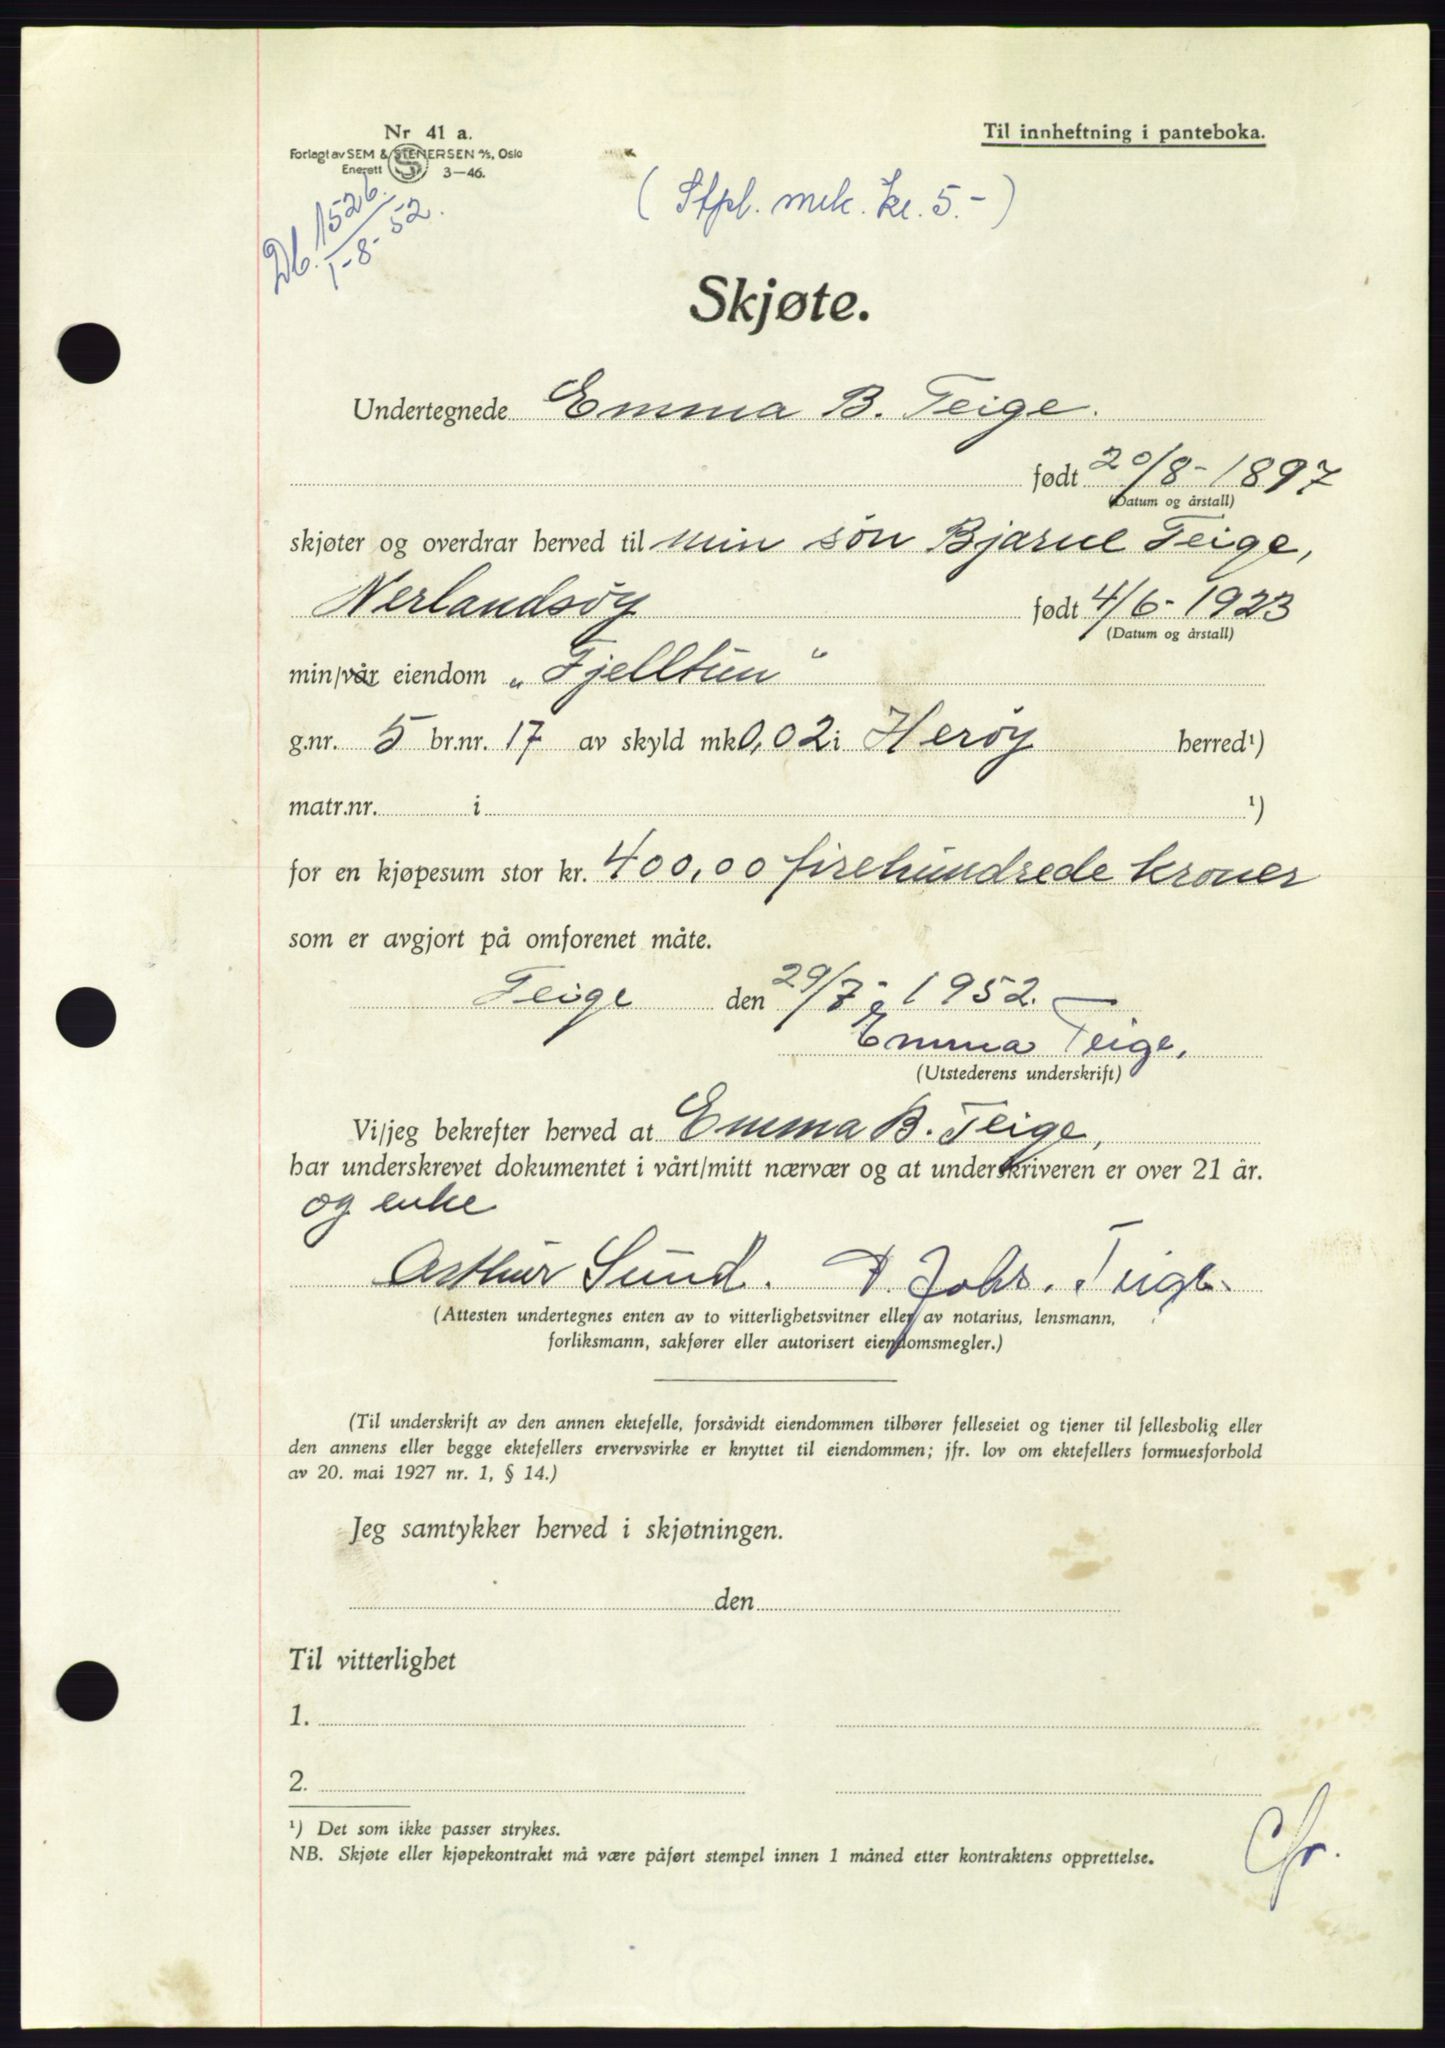 Nr 41 a.
Forlagt av SEM & STENERSEN A/S, Oslo
Enerett 3—46.
Til innheftning i panteboka.
Db. 1526.
1-8-52.
(Stpl. mrk. kr. 5.-)
Skjøte.
Undertegnede Emma B. Teige.
født 20/8-1897
(Datum og årstall)
skjøter og overdrar herved til min søn Bjarne Teige,
Nerlandsöy født 4/6-1923
(Datum og årstall)
min/vår eiendom „Fjelltun"
g.nr. 5 br.nr. 17 av skyld mk 0,02 i Heröy herred¹)
matr.nr. i ¹)
for en kjøpesum stor kr. 400,00 firehundrede kroner
som er avgjort på omforenet måte.
Teige den 29/7-1952.
Emma Teige,
(Utstederens underskrift)
Vi/jeg bekrefter herved at Emma B. Teige,
har underskrevet dokumentet i vårt/mitt nærvær og at underskriveren er over 21 år.
og enke
Arthur Sund. P. Johs. Teige.
(Attesten undertegnes enten av to vitterlighetsvitner eller av notarius, lensmann,
forliksmann, sakfører eller autorisert eiendomsmegler.)
(Til underskrift av den annen ektefelle, forsåvidt eiendommen tilhører felleseiet og tjener til fellesbolig eller
den annens eller begge ektefellers ervervsvirke er knyttet til eiendommen; jfr. lov om ektefellers formuesforhold
av 20. mai 1927 nr. 1, § 14.)
Jeg samtykker herved i skjøtningen.
den
Til vitterlighet
1.
2.
¹) Det som ikke passer strykes.
NB. Skjøte eller kjøpekontrakt må være påført stempel innen 1 måned etter kontraktens opprettelse.